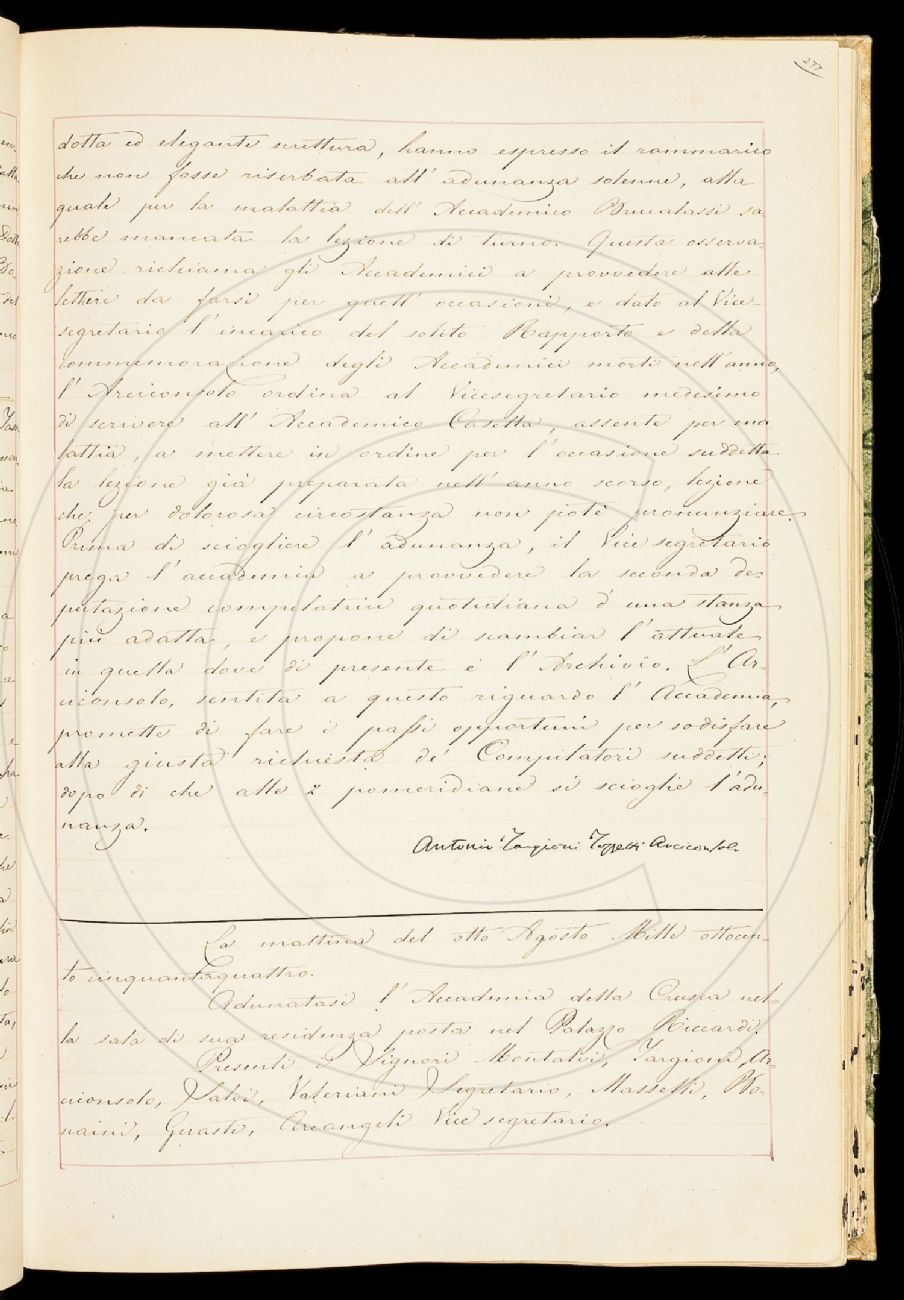 277
dotta ed elegante scrittura, hanno espresso il rammarico
che non fosse riserbata all' adunanza solenne, alla
quale per la malattia dell' Accademico Brucalassi sa
rebbe mancata la lezione di turno. Questa osserva-
zione richiama gli Accademici a provvedere alle
letture da farsi per quell' occasione, e dato al Vice-
segretario l' incarico del solito Rapporto e della
commemorazione degli Accademici morti nell' anno,
l' Arciconsolo ordina al Vicesegretario medesimo
di scrivere all' Accademico Casella, assente per ma-
lattia, a mettere in ordine per l' occasione suddetta
la lezione già preparata nell' anno scorso, lezione
che, per dolorosa circostanza non potè pronunziare.
Prima di sciogliere l' adunanza, il Vice segretario
prega l' accademia a provvedere la seconda de-
putazione compilatrice quotidiana d' una stanza
più adatta, e propone di scambiar l' attuale
in quella dove di presente è l' Archivio. L' Ar-
ciconsolo, sentita a questo riguardo l' Accademia,
promette di fare i passi opportuni per sodisfare
alla giusta richiesta de' Compilatori suddetti;
dopo di che alle 2 pomeridiane si scioglie l' adu-
nanza.
Antonio Targioni Tozzetti Arciconsolo
La mattina del otto Agosto Mille ottocen-
to cinquantaquattro.
Adunatasi l' Accademia della Crusca nel-
la sala di sua residenza posta nel Palazzo Riccardi.
Presenti i Signori Montalvi, Targioni, Ar-
ciconsolo, Salvi, Valeriani Segretario, Masselli, Bo-
naini, Guasti, Arcangeli Vice segretario.